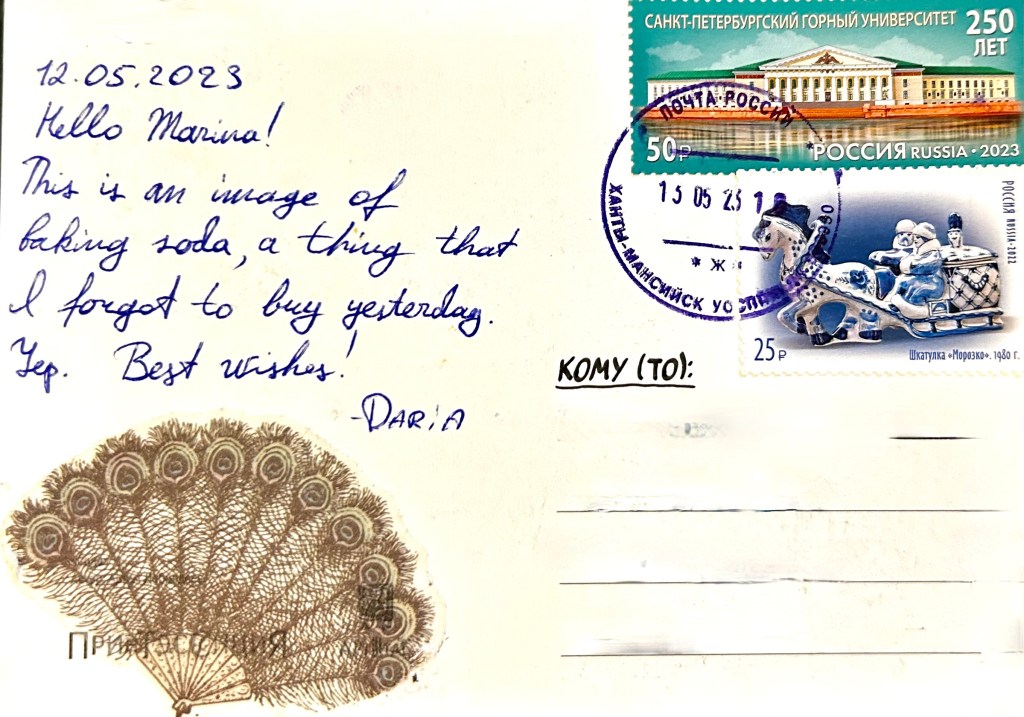 12.05.2023
Hello Marina!
This is an image of
baking soda, a thing that
I forgot to buy yesterday.
Yep. Best wishes!
-DARiA
САНКТ-ПЕТЕРБУРГСКИЙ ГОРНЫЙ УНИВЕРСИТЕТ 250
ЛЕТ
50₽ РОССИЯ RUSSIA • 2023
ПОЧТА РОССИИ
13 05 23 1
* Ж *
ХАНТЫ-МАНСИЙСК
РОССИЯ RUSSIA • 2022
25₽ Шкатулка «Морозко». 1980 г.
КОМУ (TO):